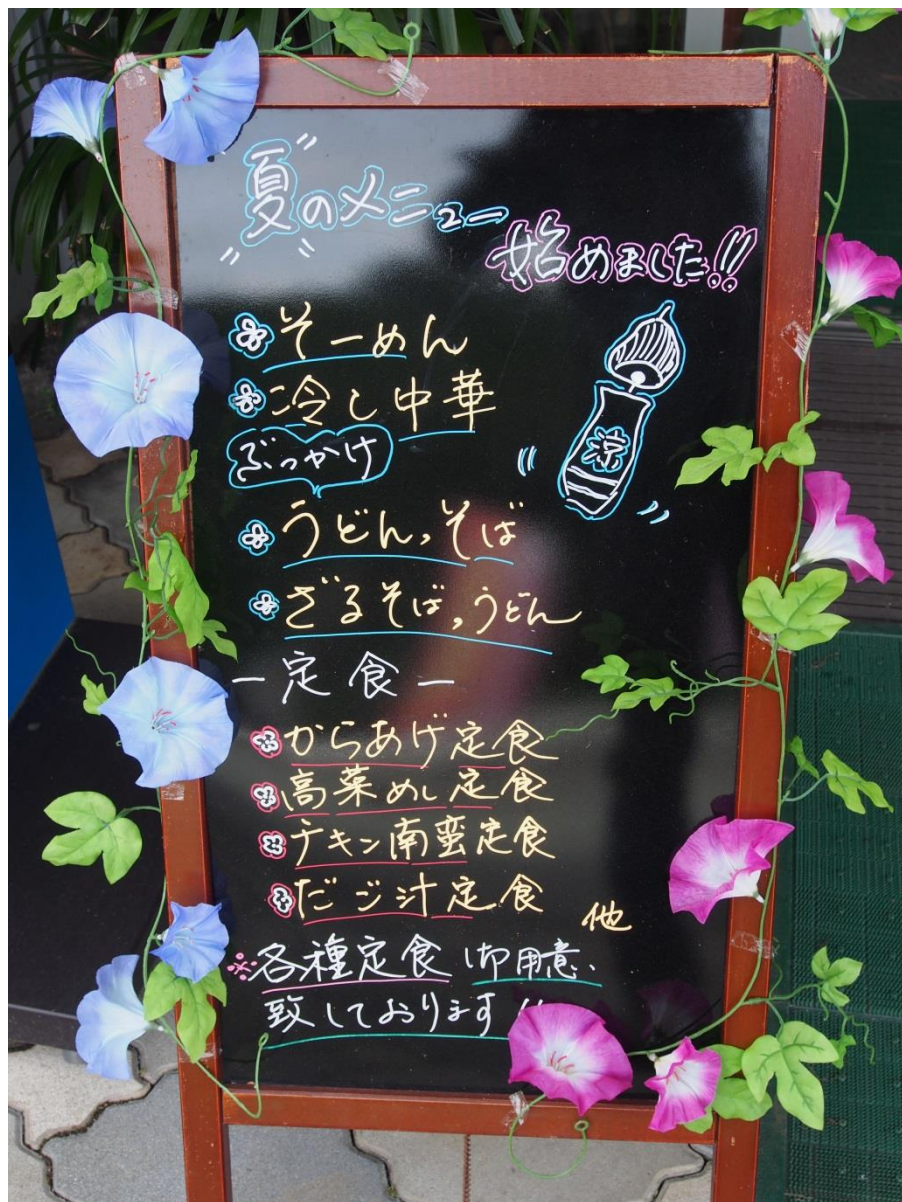 夏のメニュー
始めました!!
そーめん
冷し中華
涼
ぶっかけ
うどん、そば
ざるそば、うどん
ー定食ー
からあげ定食
高菜めし定食
チキン南蛮定食
だご汁定食
他
※各種定食御用意
致しております!!